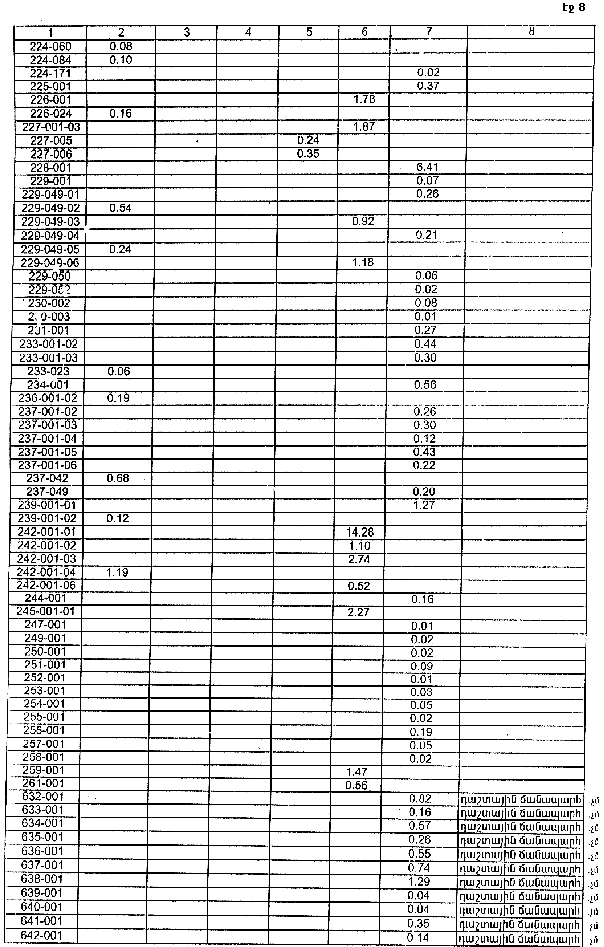 էջ 8
1 2 3 4 5 6 7 8
224-060 0.08
224-084 0.10
224-171 0.02
225-001 0.37
226-001 1.78
226-024 0.16
227-001-03 1.87
227-005 0.24
227-006 0.35
228-001 6.41
229-001 0.07
229-049-01 0.26
229-049-02 0.54
229-049-03 0.92
229-049-04 0.21
229-049-05 0.24
229-049-06 1.18
229-050 0.06
229-052 0.02
230-002 0.08
230-003 0.01
231-001 0.27
233-001-02 0.44
233-001-03 0.30
233-023 0.06
234-001 0.56
236-001-02 0.19
237-001-02 0.26
237-001-03 0.30
237-001-04 0.12
237-001-05 0.43
237-001-06 0.22
237-042 0.68
237-049 0.20
239-001-01 1.27
239-001-02 0.12
242-001-01 14.28
242-001-02 1.10
242-001-03 2.74
242-001-04 1.19
242-001-06 0.52
244-001 0.16
245-001-01 2.27
247-001 0.01
249-001 0.02
250-001 0.02
251-001 0.09
252-001 0.01
253-001 0.03
254-001 0.05
255-001 0.02
256-001 0.19
257-001 0.05
258-001 0.02
259-001 1.47
261-001 0.56
632-001 0.82 դաշտային ճանապարհ
633-001 0.16 դաշտային ճանապարհ
634-001 0.57 դաշտային ճանապարհ
635-001 0.26 դաշտային ճանապարհ
636-001 0.55 դաշտային ճանապարհ
637-001 0.74 դաշտային ճանապարհ
638-001 1.29 դաշտային ճանապարհ
639-001 0.04 դաշտային ճանապարհ
640-001 0.04 դաշտային ճանապարհ
641-001 0.35 դաշտային ճանապարհ
642-001 0.14 դաշտային ճանապարհ